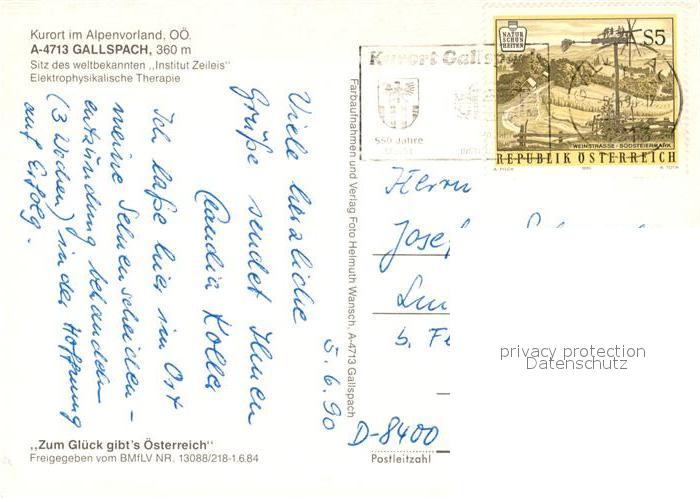 Kurort im Alpenvorland, OÖ.
A-4713 GALLSPACH, 360 m
Sitz des weltbekannten „Institut Zeileis"
Elektrophysikalische Therapie
5.6.90
Viele herzliche
Grüße sendet Ihnen
Claudia Kolle
Ich laße hier im Ort
meine Sehnenscheiden-
entzündung behandeln
(3 Wochen) in der Hoffnung
auf Erfolg.
„Zum Glück gibt's Österreich"
Freigegeben vom BMfLV NR. 13088/218-1.6.84
Farbaufnahmen und Verlag Foto Helmuth Wansch, A-4713 Gallspach
Kurort Gallspach
550 Jahre
NATUR
SCHÖN
HEITEN
S5
WEINSTRASSE - SÜDSTEIERMARK
REPUBLIK ÖSTERREICH
Herrn
Josef
b. Fe
D-8400
Postleitzahl
privacy protection
Datenschutz